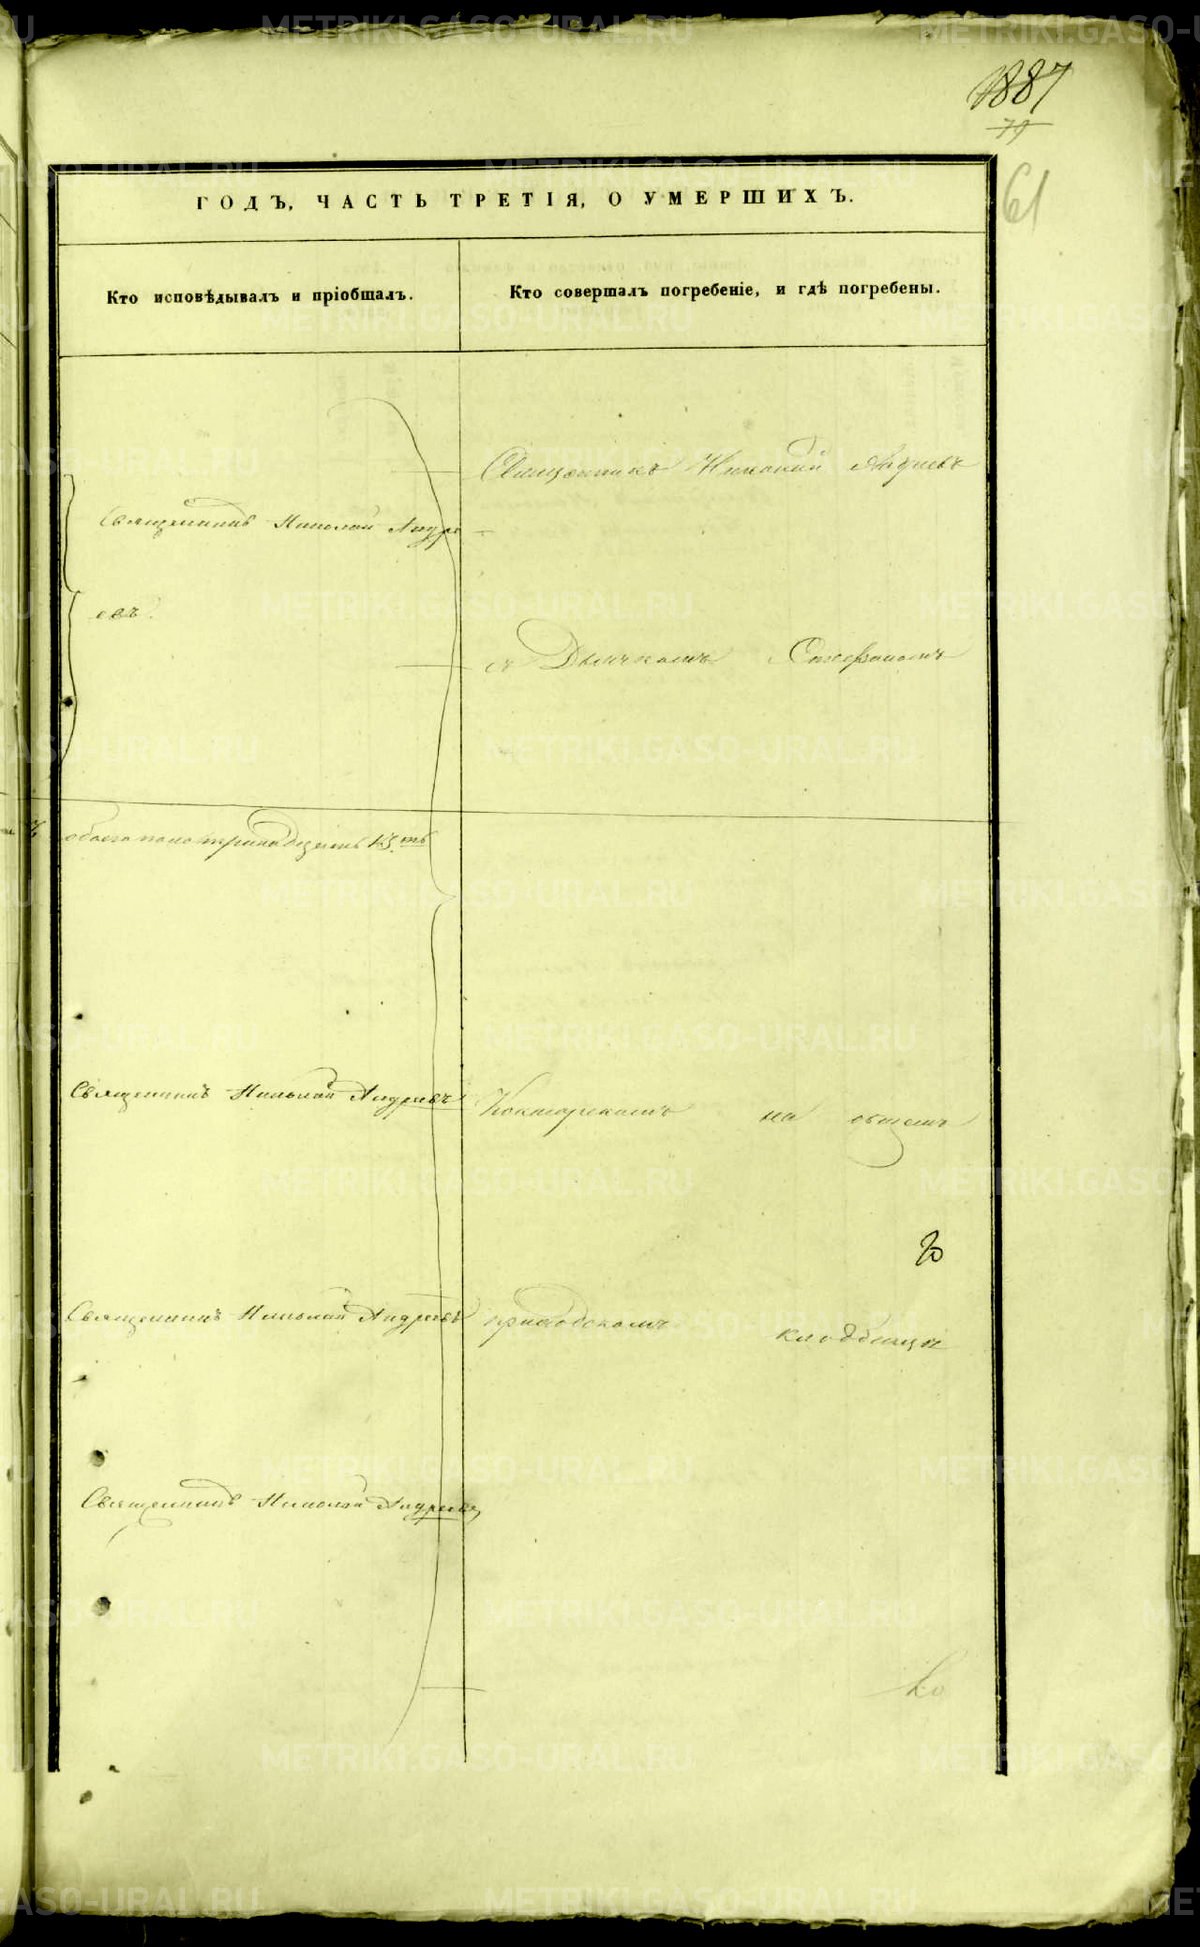 1887
79
61
ГОДЪ, ЧАСТЬ ТРЕТІЯ, О УМЕРШИХЪ.
Кто исповѣдывалъ и пріобщалъ.
Кто совершалъ погребеніе, и гдѣ погребены.
Священникъ Николай Андреевъ
Священникъ Николай Андре
евъ.
съ Дьячкомъ
обоего пола тринадцать 13.ть
Священникъ Николай Андреевъ
на общемъ
Священникъ Николай Андреевъ
приходскомъ кладбищѣ
Священникъ Николай Андреевъ
METRIKI.GASO-URAL.RU